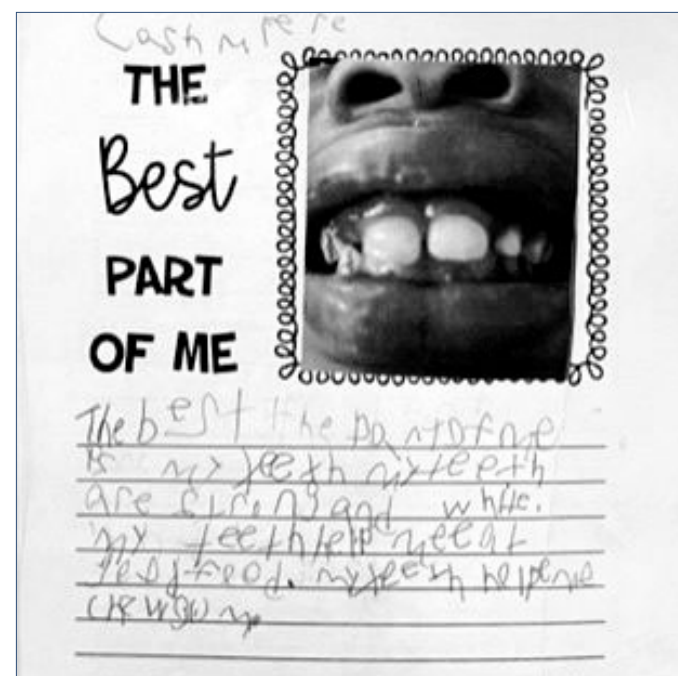 Cashmere
THE
Best
PART
OF ME
The best the part of me
is my teeth my teeth
are strong and white.
my teeth help me eat
food. my teeth help me
chew gum